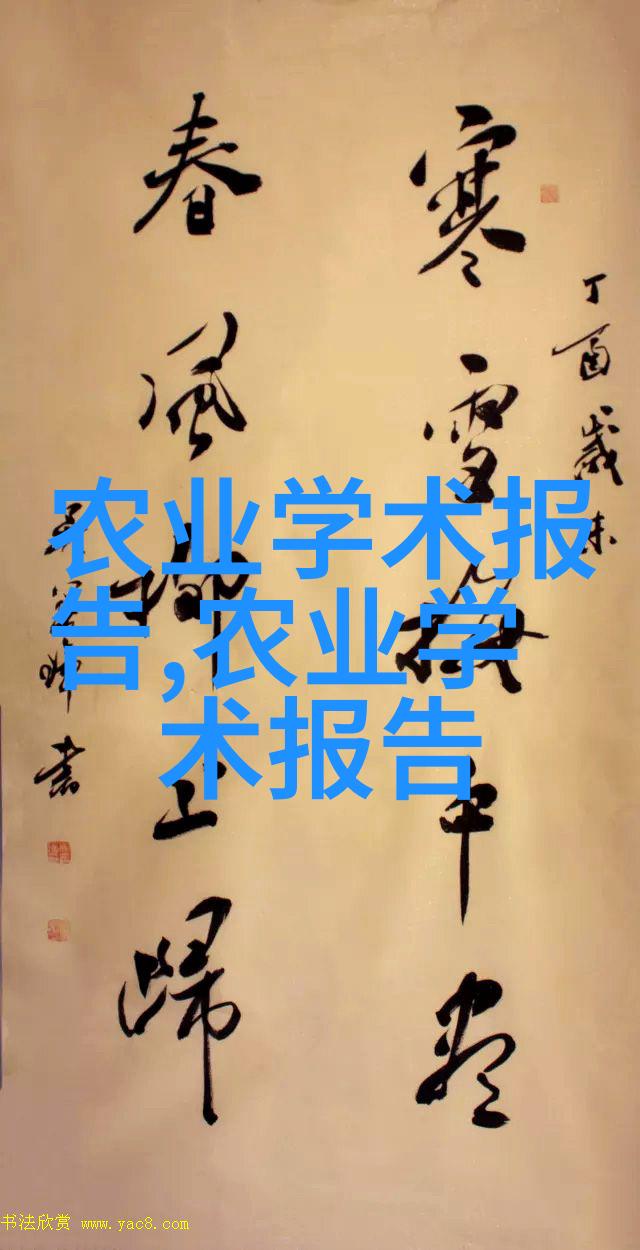 丁酉歲末
寒雪梅中尽
春風柳上歸
书
农业学术报
告,农业学
术报告
书法欣赏 www.yac8.com